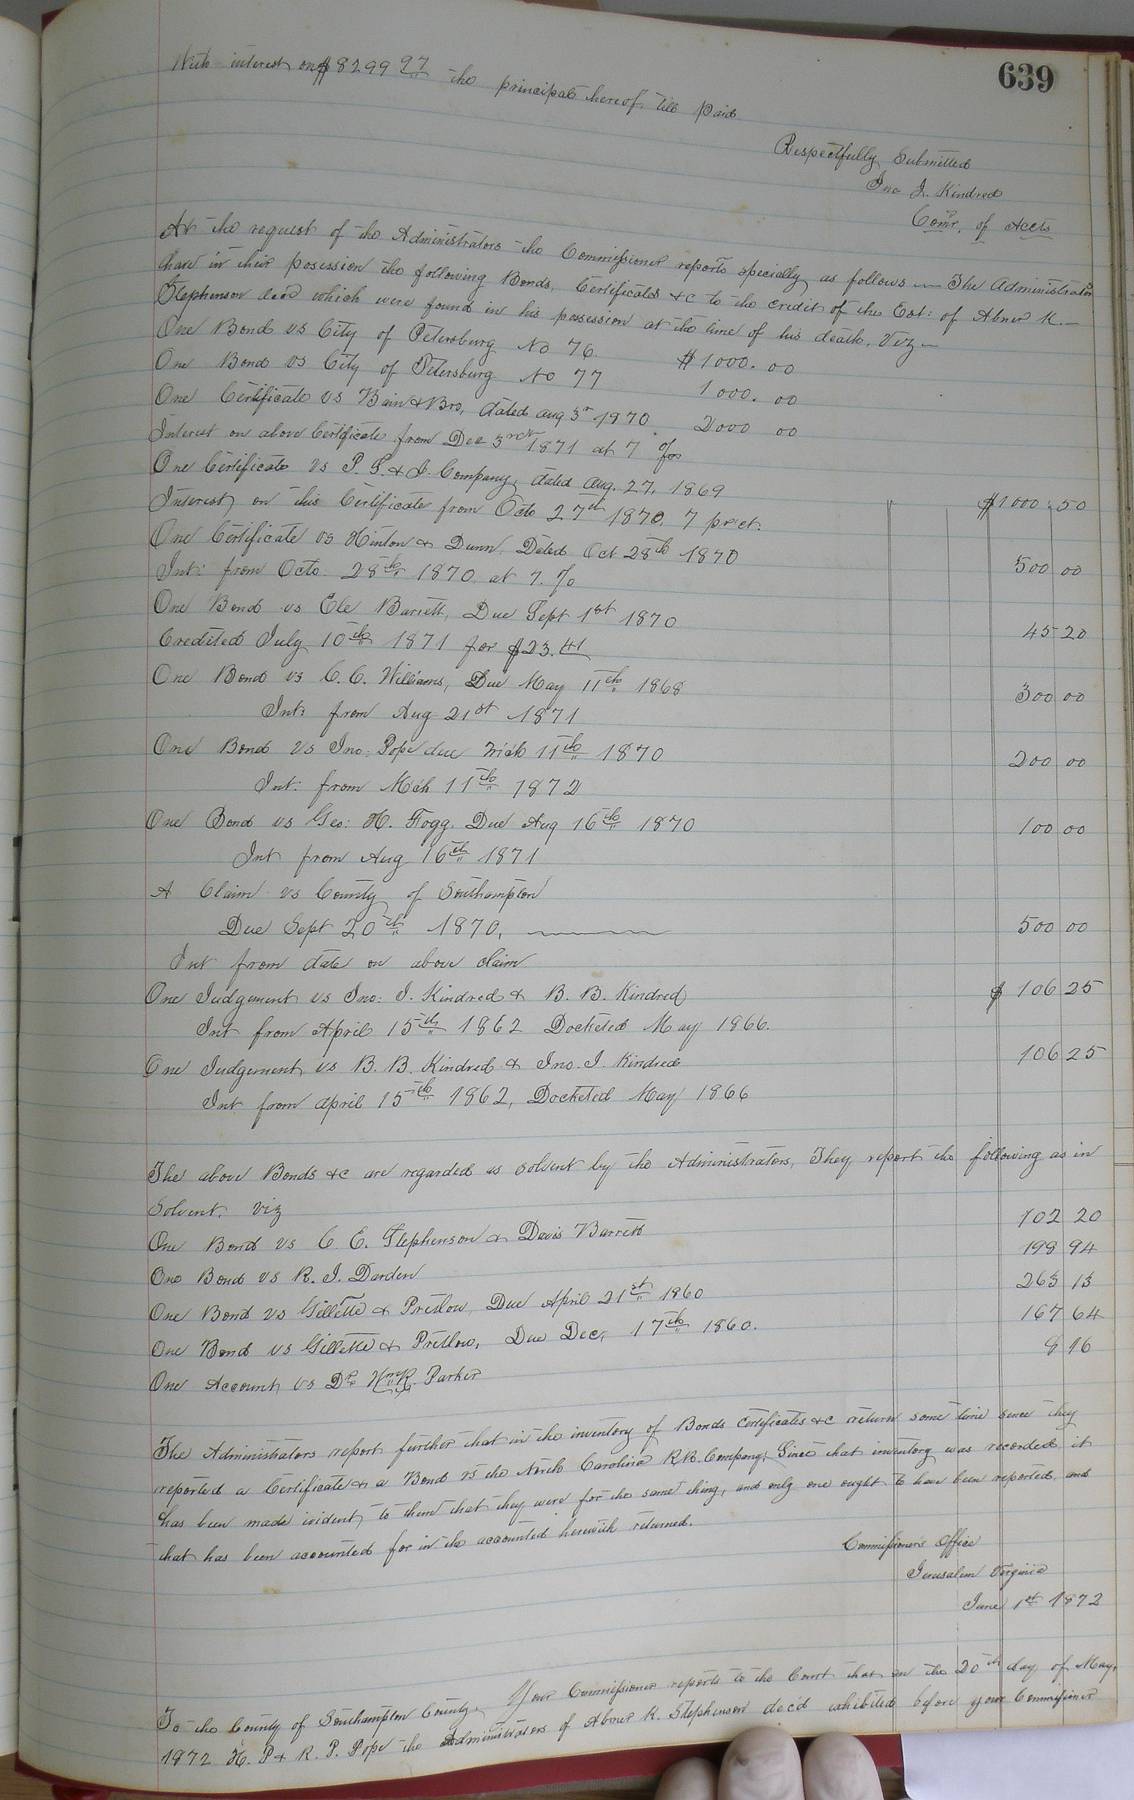 639
With interest on $8299 97 the principal hereof till paid
Respectfully Submitted
Jno J. Kindred
Comr. of Accts
At the request of the Administrators the Commissioner reports specially as follows — The Administrators
have in their posession the following Bonds, Certificates &c to the credit of the Est: of Abner K. —
Stephenson decd which were found in his possession at the time of his death, Viz —
One Bond vs City of Petersburg No 76. $1000. 00
One Bond vs City of Petersburg No 77 1000. 00
One Certificate vs Bain & Bro, dated Aug 3rd 1970. 2000 00
Interest on above Certificate from Dec 3rd 1871 at 7 %
One Certificate vs P. S. & J. Company, dated Aug. 27, 1869 $1000.50
Interest on this Certificate from Octo 27th 1870. 7 prct.
One Certificate vs Hinton & Dunn, Dated Oct 28th 1870 500 00
Int: from Octo. 28th 1870 at 7. %
One Bond vs Ele Barrett, Due Sept 1st 1870 45 20
Credited July 10th 1871 for $23.41
One Bond vs C. C. Williams, Due May 11th 1868 300 00
Int: from Aug 21st 1871
One Bond vs Jno: Pope due Mch 11th 1870 200 00
Int: from Mch 11th 1872
One Bond vs Geo: H. Fogg. Due Aug 16th 1870 100 00
Int from Aug 16th 1871
A Claim vs County of Southampton
Due Sept 20th 1870, 500 00
Int from date on above claim
One Judgement vs Jno: J. Kindred & B. B. Kindred $ 106 25
Int from April 15th 1862 Docketed May 1866.
One Judgement vs B. B. Kindred & Jno. J. Kindred 106 25
Int from april 15th 1862, Docketed May 1866
The above Bonds &c are regarded as solvent by the Administrators, They report the following as in
Solvent. viz
One Bond vs C. E. Stephenson & Davis Barrett 102 20
One Bond vs R. J. Darden 198 94
One Bond vs Gillette & Pretlow, Due April 21st 1860 263 13
One Bond vs Gillette & Pretlow, Due Dec, 17th 1860. 167 64
One Account vs Dr Parker 8 16
The Administrators report further that in the inventory of Bonds Certificates &c return some time since they
reported a Certificate & a Bond vs the North Carolina R.R. Company, Since that inventory was recorded it
has been made evident to them that they were for the same thing, and only one ought to have been reported, and
that has been accounted for in the accounted herewith returned.
Commissioners Office
Jerusalem Virginia
June 1st 1872
To the County of Southampton County, Your Commissioner reports to the Court that on the 20th day of May,
1872 H. P & R. P. Pope the Administrators of Abner K. Stephenson dec'd exhibited before your Commissioner